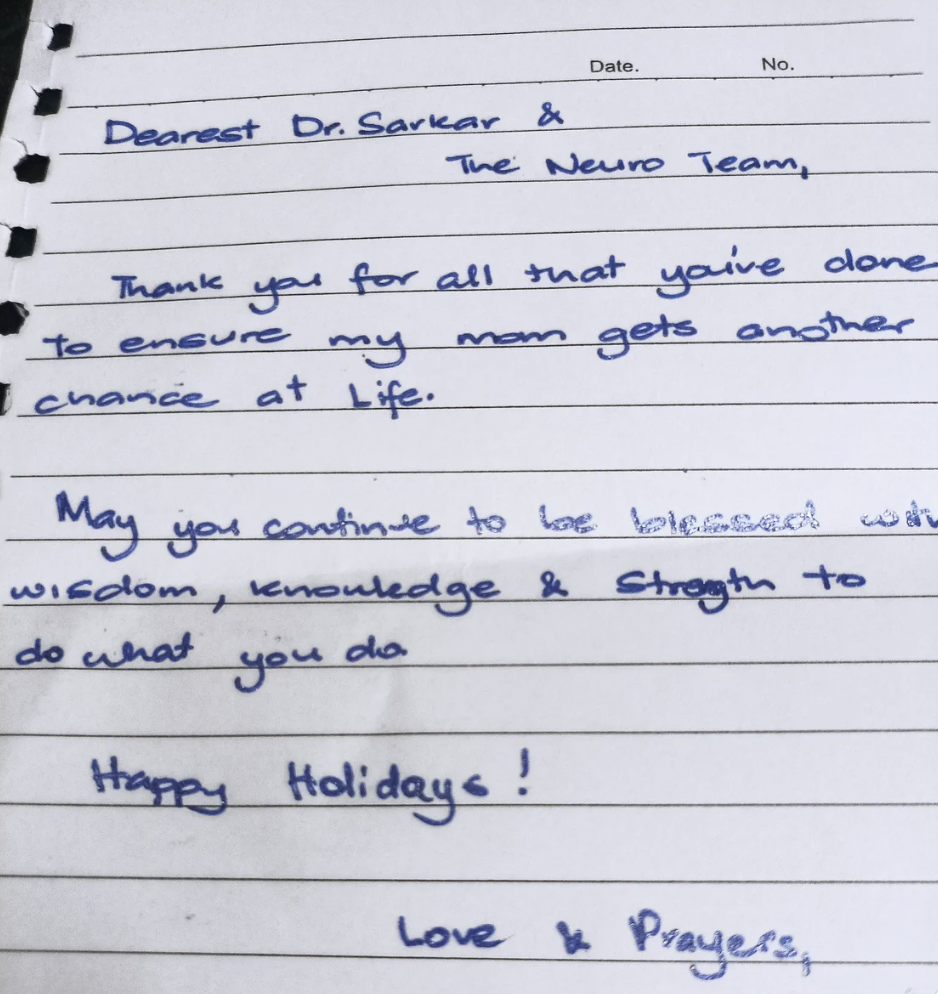 Date. No.
Dearest Dr. Sarkar &
The Neuro Team,
Thank you for all that you've done
to ensure my mom gets another
chance at Life.
May you continue to be blessed with
wisdom, knowledge & Strength to
do what you do
Happy Holidays!
Love & Prayers,